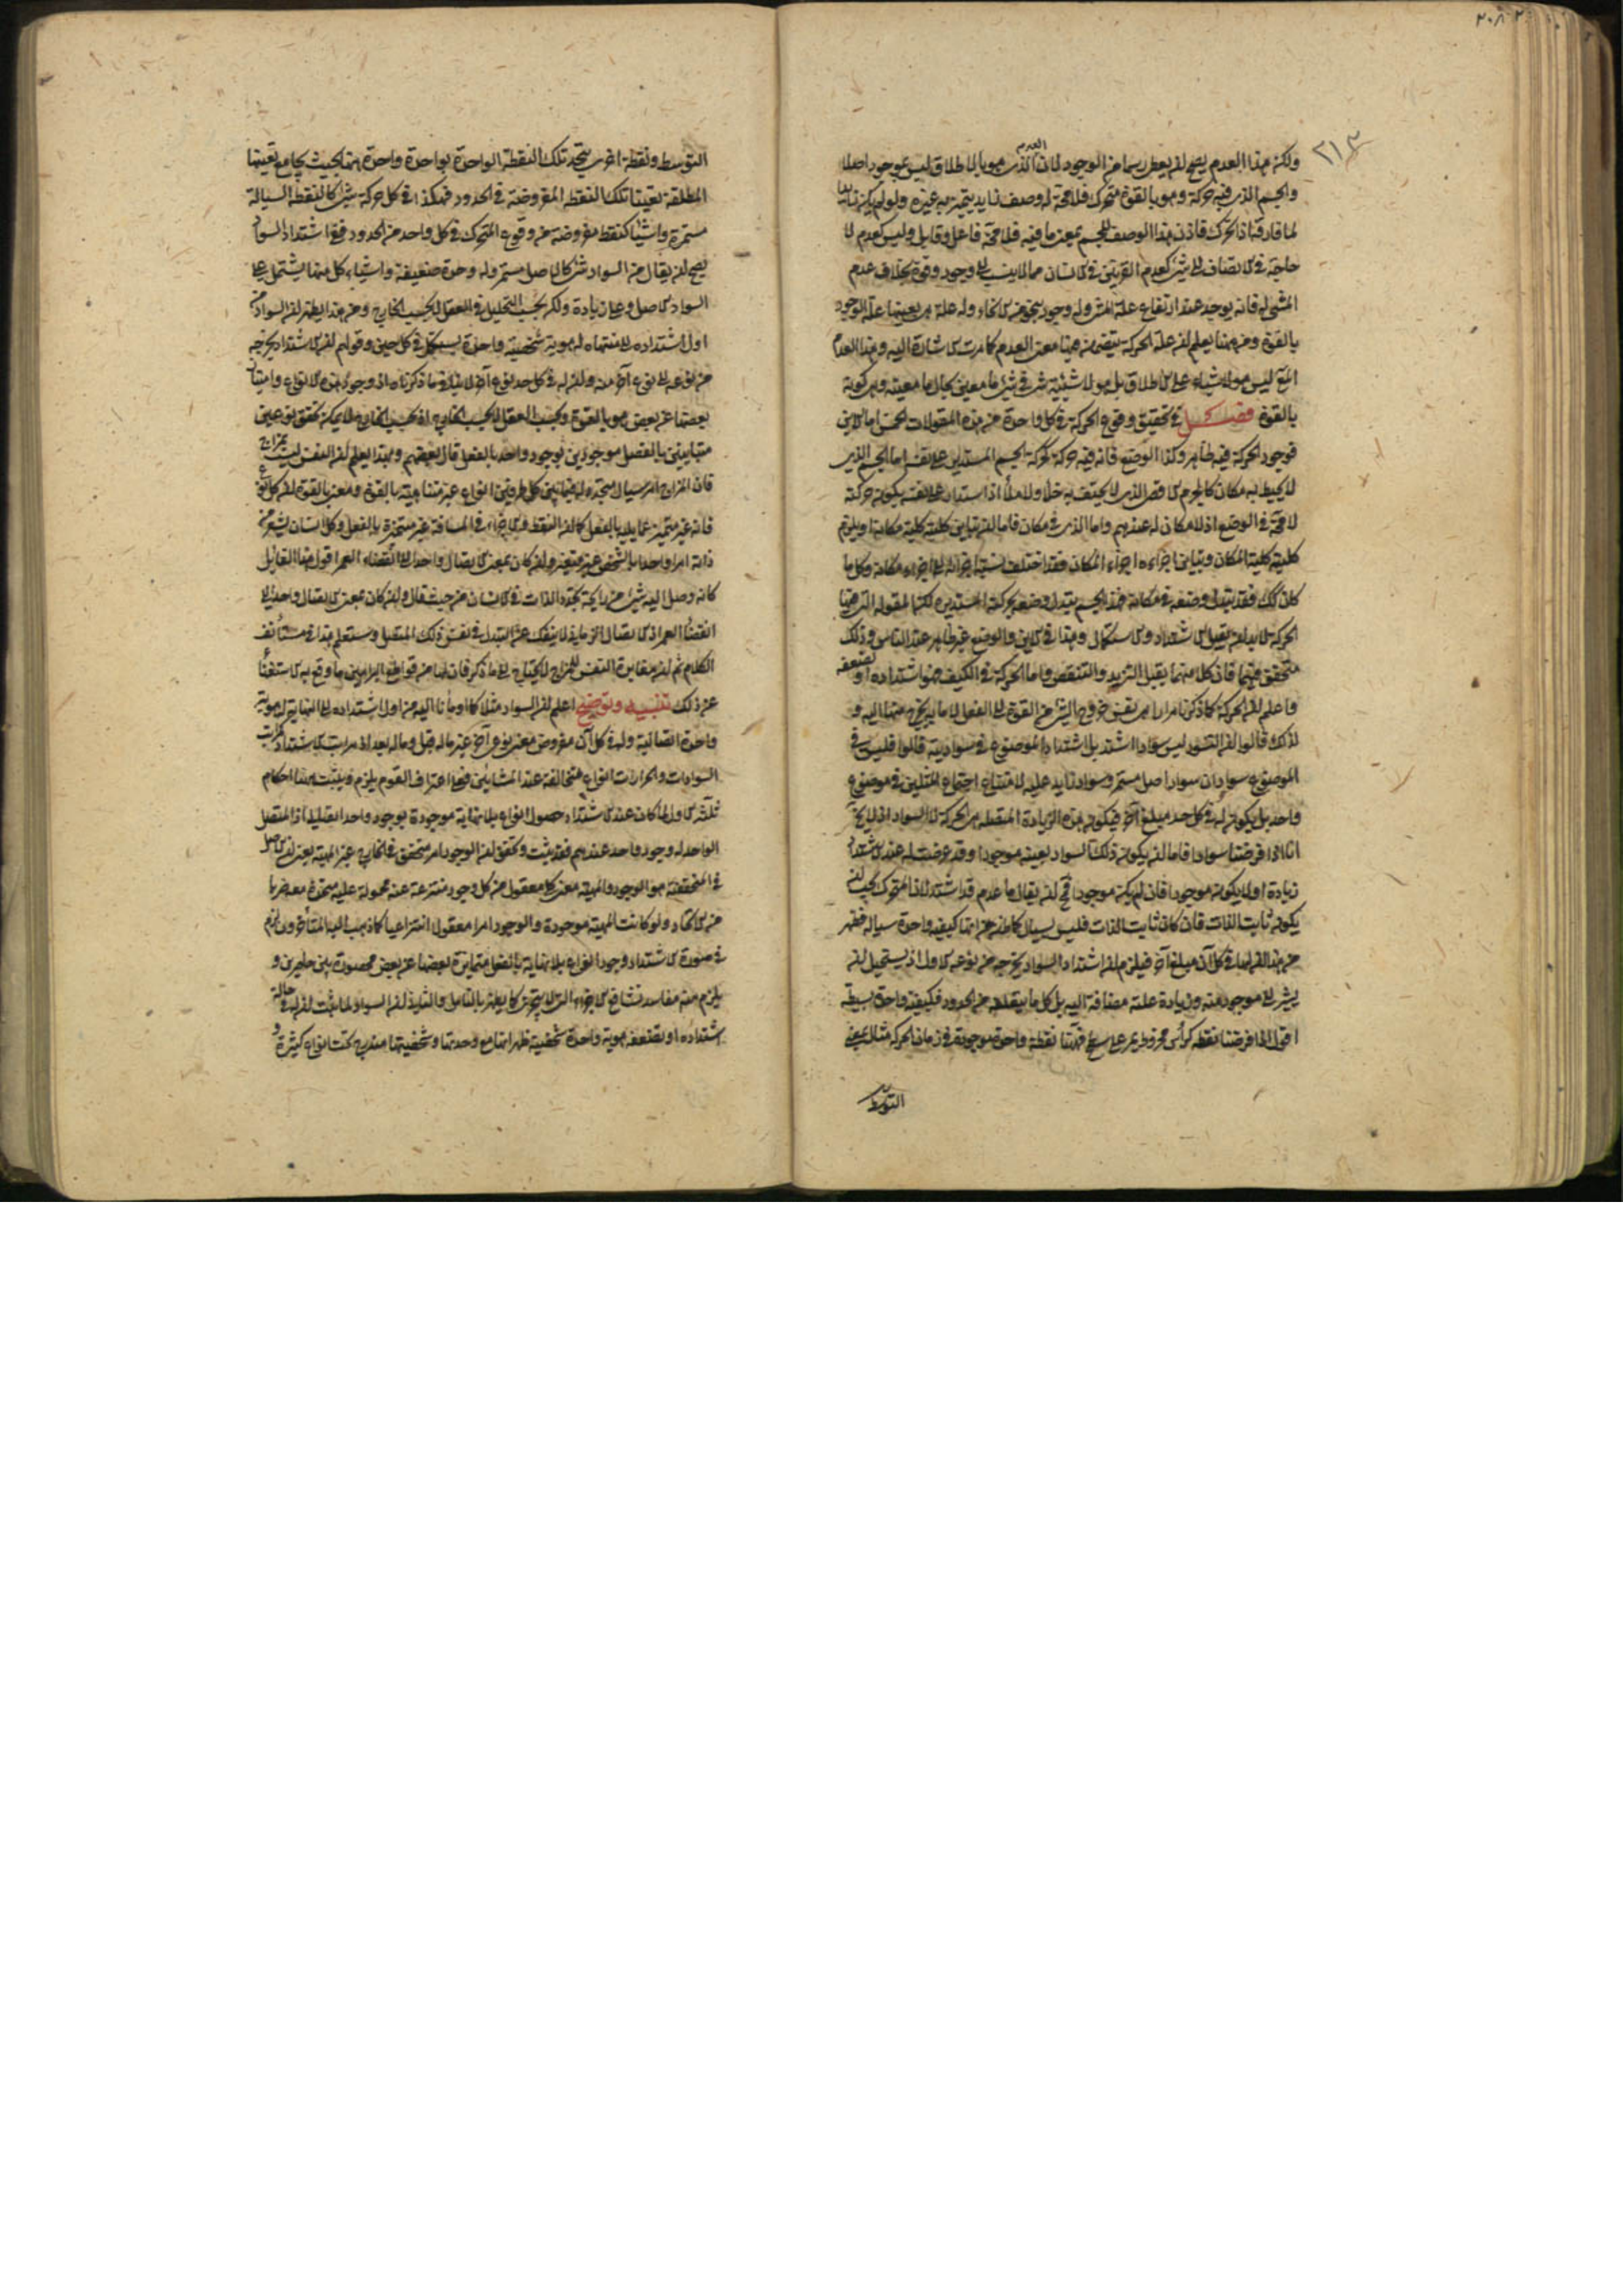 ٢٠٨ ٢
٢١٣
العدم
ولكن هذا العدم يصح ان يعطى رسما من الوجود لان الذى هو بالاطلاق ليس بموجود اصلا
والجسم الذى فيه حركة وهو بالقوة متحرك فلا محة له وصف زايد يتميز به عن غيره ولو لم يكن زايدا
لما فارقه اذا تحرك فاذن هذا الوصف للجسم بمعنى ما فيه فلا محة فاعل وقابل وليس كعدم لا
حاجة فى الاتصاف الى شئ كعدم القرنين فى الانسان مما لا ينسب الى وجود وقوة بخلاف عدم
المشى له فانه يوجد عند ارتفاع علة المشى وله وجود بنحو من الانحاء وله علة هى بعينها علة الوجود
بالقوة ومن ههنا يعلم ان علة الحركة يتضمن ههنا معنى العدم كما مرت الاشارة اليه وهذا العدم
المع ليس هو لا شئ على الاطلاق بل هو لا شيئية شئ فى شئ ما معين بحال ما معينة وهى كونه
بالقوة فصل فى تحقيق وقوع الحركة فى كل واحدة من هذه المقولات الخمس اما الاين
فوجود الحركة فيه ظاهر وكذا الوضع فانه فيه حركة كحركة الجسم المستدير على نفسه اما الجسم الذى
لا يحيط به مكان كالجرم الاقصى الذى لا يحتف به خلأ ولا ملأ اذا استدار على نفسه يكون حركة
لا محة فى الوضع اذ لا مكان له عندهم واما الذى فى مكان فاما ان يباين كليته كلية مكانه او يلزم
كليته كلية المكان ويباين اجزاءه اجزاء المكان فقد اختلف نسبة اجزائه الى اجزاء مكانه وكل ما
كان كك فقد تبدل وضعه فى مكانه فهذا الجسم يتبدل وضعه بحركته المستديرة لكنها المقولة التى فيها
الحركة لا بد ان يقبل الاشتداد والاستكمال وهذا فى الاين والوضع غير ظاهر عند الناس وذلك
متحقق فيهما فان كلا منهما يقبل التزيد والتنقص واما الحركة فى الكيف فهو اشتداده او تضعفه
واعلم ان الحركة كما ذكرنا مرارا هى نفس خروج الشئ من القوة الى الفعل لا ما به يخرج منها اليه و
لذلك قالوا ان التسود ليس سوادا اشتد بل اشتداد الموضوع فى سواديته قالوا فليس فى
الموضوع سوادان سواد اصل مستمر وسواد زايد عليه لامتناع اجتماع المثلين فى موضوع
واحد بل يكون له فى كل حد مبلغ آخر فيكون هذه الزيادة المتصلة هى الحركة لا السواد اذ لا يخ
انا اذا فرضنا سوادا فاما ان يكون ذلك السواد بعينه موجودا وقد عرضت له عند الاشتداد
زيادة او لا يكون موجودا فان لم يكن موجودا فمح ان يقال ما عدم قد اشتد لان المتحرك يجب ان
يكون ثابت الذات فان كان ثابت الذات فليس بسيال كما ظن من انها كيفية واحدة سيالة فظهر
من هذا ان لها فى كل آن مبلغ آخر فيلزم ان اشتداد السواد يخرجه من نوعه الاول اذ يستحيل ان
يشير الى موجود منه وزيادة عليه مضافة اليه بل كل ما يبلغه من الحدود فكيفيته واحدة بسيطة
اقول اذا فرضنا نقطة كرأس مخروط يمر على سطح فههنا نقطة واحدة موجودة فى زمان الحركة مثال بمعنى
التوسط
التوسط ونقطة اخرى يتحد تلك النقطة الواحدة بواحدة واحدة منها بحيث يجامع تعينها
المطلقة تعينات تلك النقطة المفروضة فى الحدود فهكذا فى كل حركة شئ كالنقطة السيالة
مستمرة واشياء كنقط مفروضة من وقوع المتحرك فى كل واحد من الحدود ففى اشتداد السواد
يصح ان يقال من السواد شئ كالاصل مستمر وله وحدة ضعيفة واشياء كل منها يشتمل على
السواد الاصل وعلى زيادة ولكن بحسب التحليل فى العقل لا بحسب الخارج ومن هذا يظهر ان السواد من
اول اشتداده الى منتهاه له هوية شخصية واحدة يستكمل فى كل حين وقولهم ان الاشتداد يخرجه
من نوعه الى نوع آخر منه وان له فى كل حد نوع آخر لا ينافى ما ذكرناه اذ وجود هذه الانواع وامتياز
بعضها عن بعض هو بالقوة وبحسب العقل لا بحسب الخارج اذ بحسب الخارج لا يمكن تحقق نوعين
متباينين بالفصل موجودين بوجود واحد بالفعل قال بعضهم وبهذا يعلم ان النفس ليست بمزاج
فان المزاج امر سيال متجدد له فيما بين كل طرفين انواع غير متناهية بالقوة ومعنى بالقوة ان كل نوع
فانه غير متميز عما يليه بالفعل كما ان النقط والاجزاء فى المسافة غير متميزة بالفعل وكل انسان يشعر من
ذاته امرا واحدا بالشخص غير متغير وان كان بمعنى الاتصال واحدا الى انقضاء العمر اقول هذا القايل
كانه وصل اليه شئ من رايحة تجدد الذات فى الانسان من حيث قال وان كان بمعنى الاتصال واحدا الى
انقضاء العمر اذ الاتصال الزمانى لا ينفك عن التبدل فى نفس ذلك المتصل وستعلم هذا فى مستأنف
الكلام ثم ان مغايرة النفس للمزاج لا يحتاج الى ما ذكر فان لها من قواطع البراهين ما وقع به الاستغناء
عن ذلك تنبيه وتوضيح اعلم ان السواد مثلا كما اومأنا اليه من اول اشتداده الى النهاية له هوية
واحدة اتصالية وله فى كل آن مفروض معنى نوعى آخر غير ما له قبل وما له بعد اذ مراتب الاشتداد كمراتب
السوادات والحرارات انواع متخالفة عند المشائين فمع اعتراف القوم يلزم ويثبت ههنا احكام
ثلثة الاول لما كان عند الاشتداد حصول انواع بلا نهاية موجودة بوجود واحد اتصالى اذ المتصل
الواحد له وجود واحد عندهم فقد ثبت وتحقق ان الوجود امر متحقق فى الخارج غير المهية يعنى ان الاصل
فى المتحققية هو الوجود والمهية معنى كلى معقول من كل وجود منتزعة عنه محمولة عليه متحدة معه ضربا
من الاتحاد ولو كانت المهية موجودة والوجود امرا معقولا انتزاعيا كما ذهب اليه المتأخرون لزم
فى صورة الاشتداد وجود انواع بلا نهاية بالفعل متمايزة بعضها عن بعض محصورة بين حاصرين و
يلزم منه مفاسد تشافع الاجزاء التى لا يتجزى كما يظهر بالتامل والثانى ان السواد لما ثبت ان له فى حالة
اشتداده او تضعفه هوية واحدة شخصية ظهر انها مع وحدتها وشخصيتها مندرج تحت انواع كثيرة و